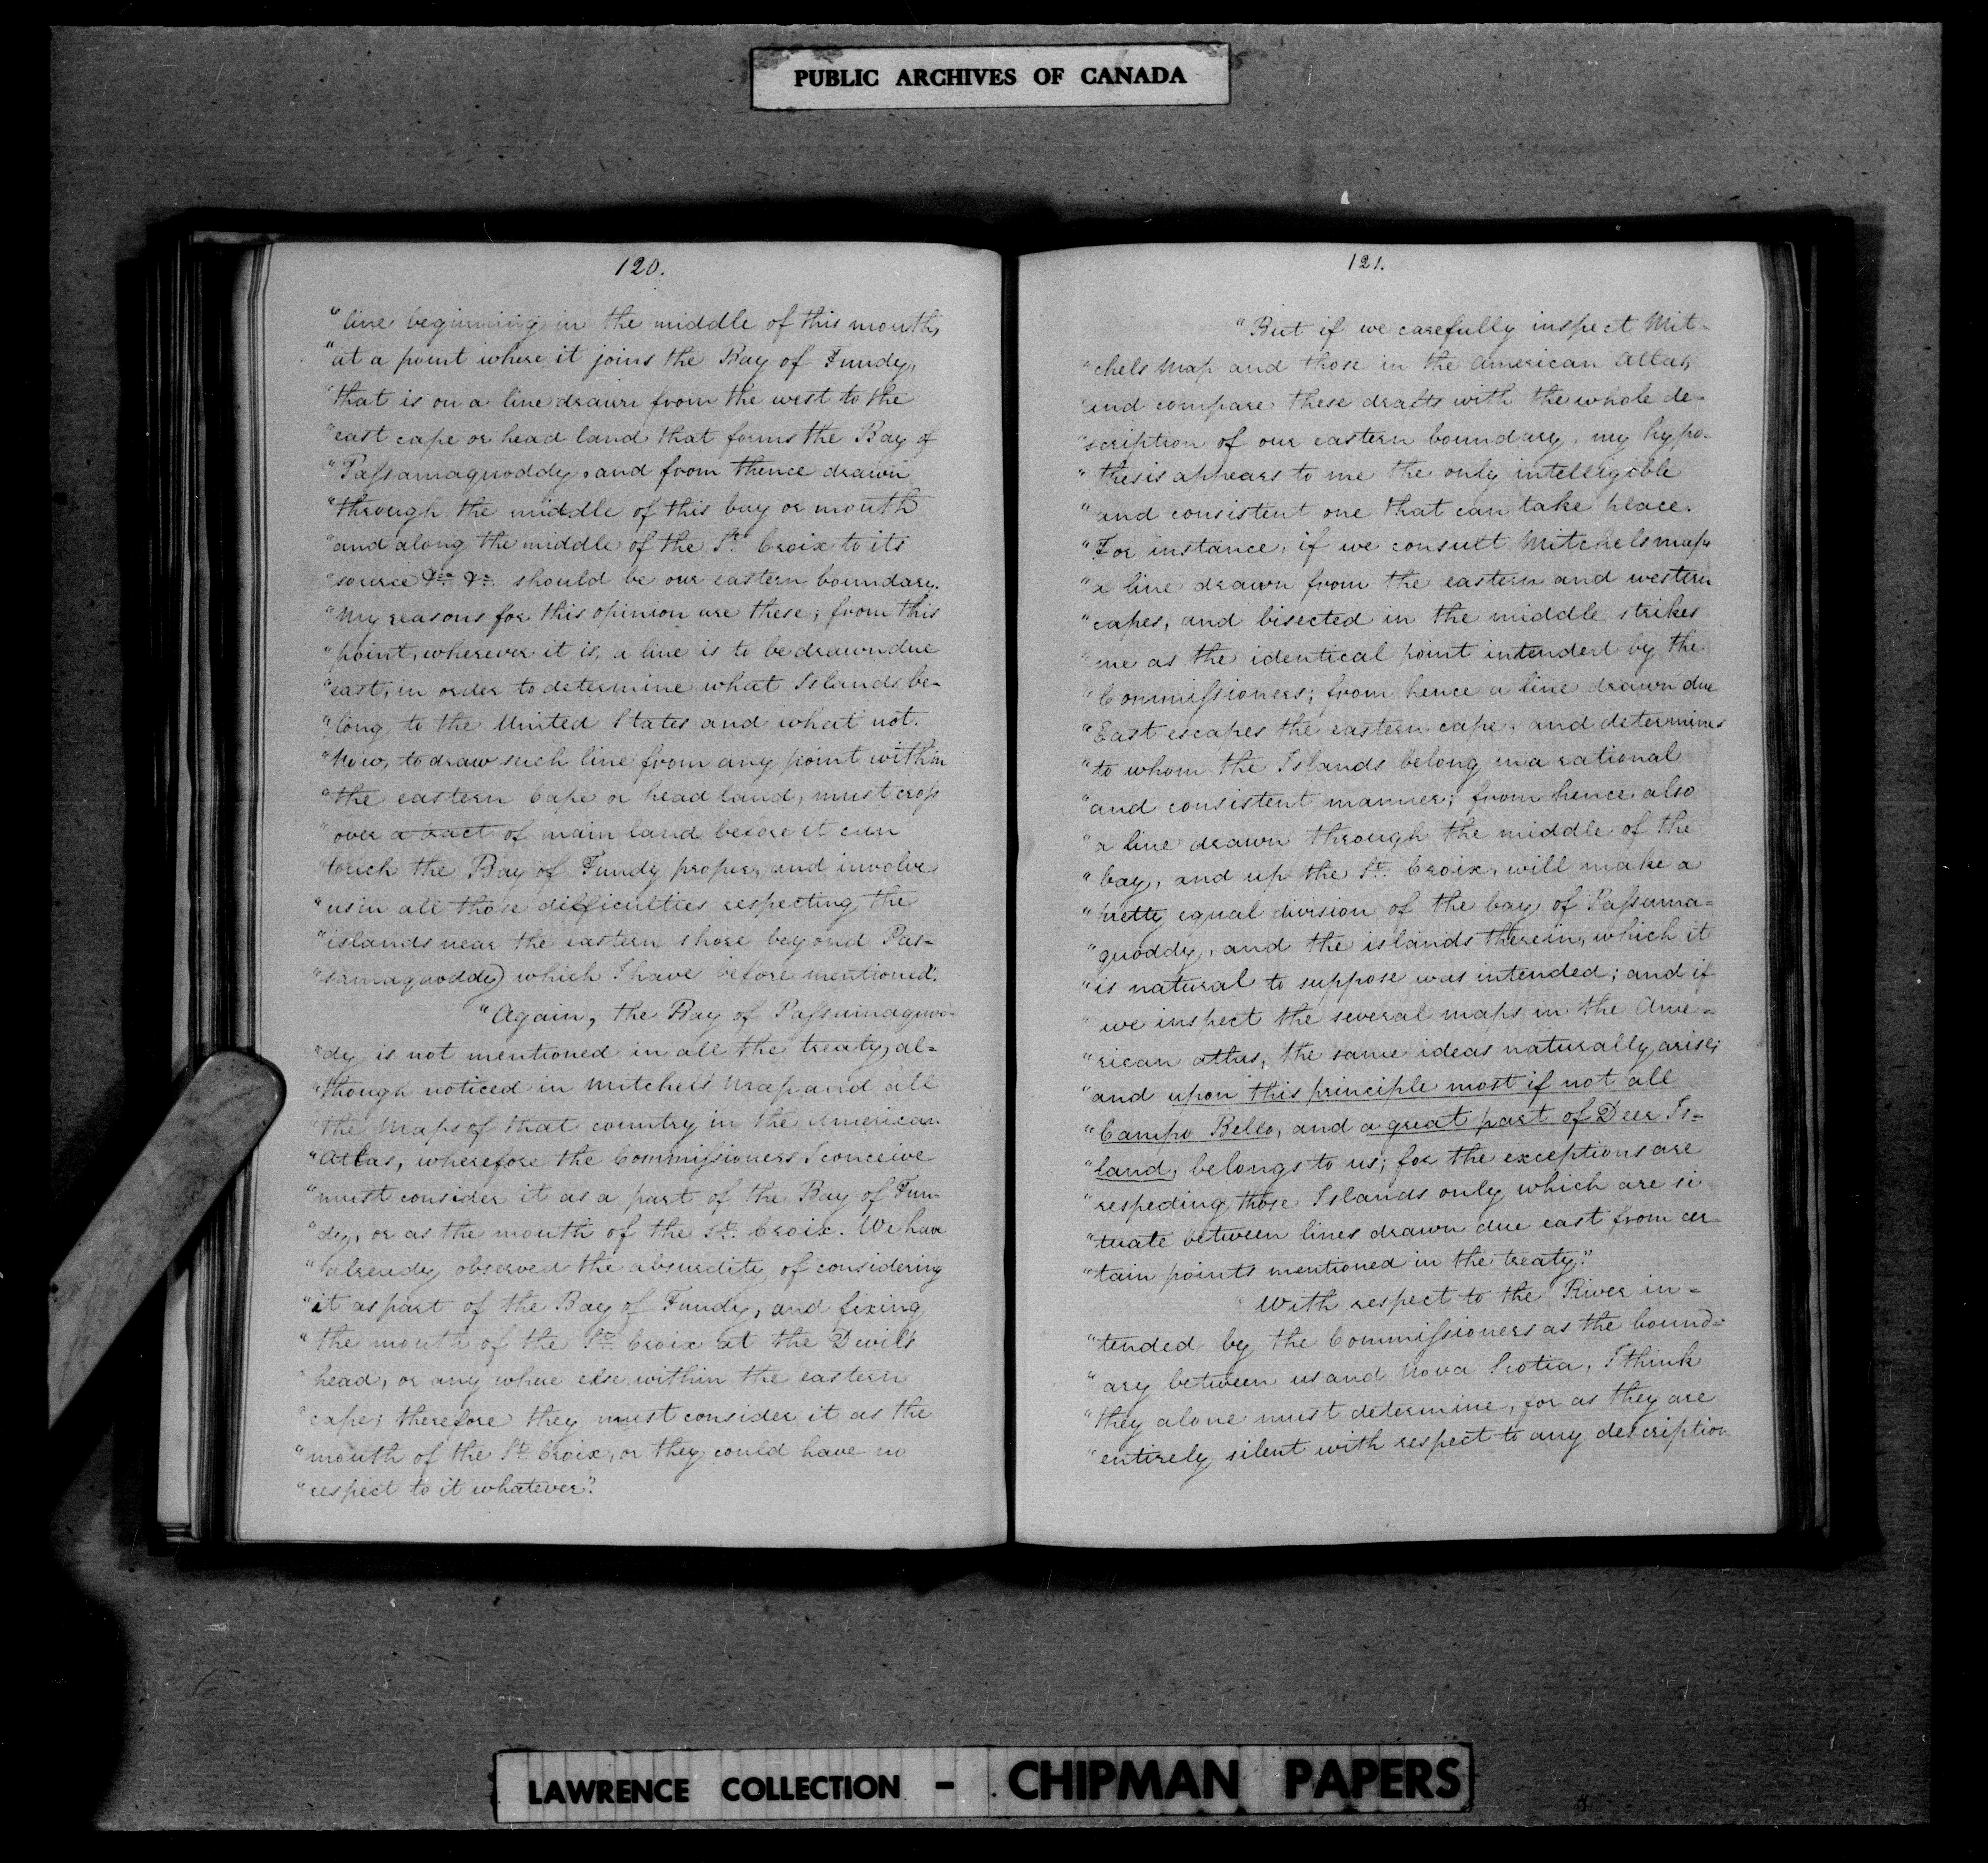 PUBLIC ARCHIVES OF CANADA
120.
"line beginning in the middle of this mouth,
"at a point where it joins the Bay of Fundy,
"that is on a line drawn from the west to the
"east cape or head land that forms the Bay of
"Passamaquoddy, and from thence drawn
"through the middle of this bay or mouth
"and along the middle of the St. Croix to its
"source &c. &c. should be our eastern boundary.
"My reasons for this opinion are these; from this
"point, wherever it is, a line is to be drawn due
"east, in order to determine what Islands be-
"long to the United States and what not.
"Now, to draw such line from any point within
"the eastern Cape or head land, must cross
"over a tract of main land before it can
"touch the Bay of Fundy proper, and involve
"us in all those difficulties respecting the
"islands near the eastern shore beyond Pas-
"samaquoddy) which I have before mentioned."
"Again, the Bay of Passamaquod-
"dy is not mentioned in all the treaty, al=
"though noticed in Mitchels Map and all
"the Maps of that country in the American
"Atlas, wherefore the Commissioners I conceive
"must consider it as a part of the Bay of Fun-
"dy, or as the mouth of the St. Croix. We have
"already observed the absurdity of considering
"it as part of the Bay of Fundy, and fixing
"the mouth of the St. Croix at the Devils
"head, or any where else within the eastern
"cape; therefore they must consider it as the
"mouth of the St. Croix, or they could have no
"respect to it whatever."
121.
"But if we carefully inspect Mit-
"chels Map and those in the American Atlas,
"and compare these drafts with the whole de-
"scription of our eastern boundary, my hypo-
"thesis appears to me the only intelligible
"and consistent one that can take place.
"For instance, if we consult Mitchels map
"a line drawn from the eastern and western
"capes, and bisected in the middle strikes
"me as the identical point intended by the
"Commissioners; from hence a line drawn due
"East escapes the eastern cape, and determines
"to whom the Islands belong in a rational
"and consistent manner; from hence also
"a line drawn through the middle of the
"bay, and up the St. Croix, will make a
"pretty equal division of the bay of Passama=
"quoddy, and the islands therein, which it
"is natural to suppose was intended; and if
"we inspect the several maps in the Ame-
"rican atlas, the same ideas naturally arise;
"and upon this principle most if not all
"Campo Bello, and a great part of Deer Is-
"land, belongs to us; for the exceptions are
"respecting those Islands only which are si-
"tuate between lines drawn due east from cer
"tain points mentioned in the treaty."
With respect to the River in-
"tended by the Commissioners as the bound=
"ary between us and Nova Scotia, I think
"they alone must determine, for as they are
"entirely silent with respect to any description
LAWRENCE COLLECTION - CHIPMAN PAPERS